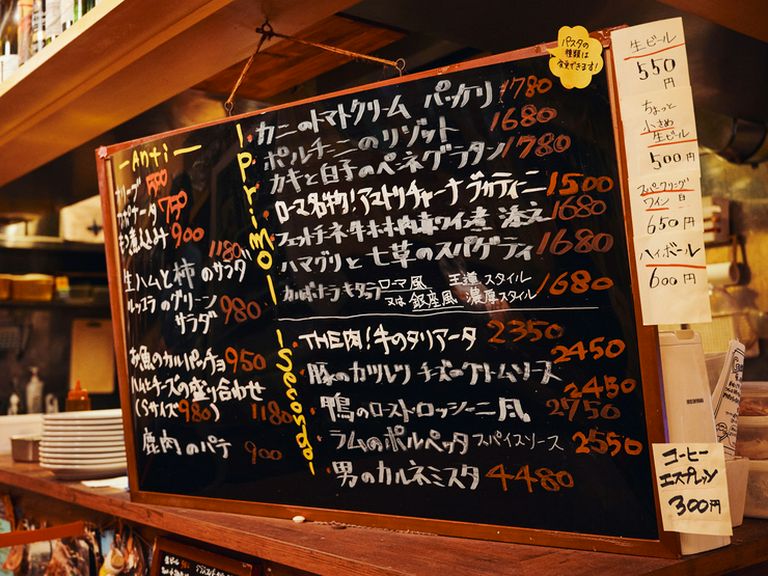 ーAntiー
オリーブ 500
カポナータ 750
モツ煮込み 900
1180
生ハムと柿のサラダ
ルッコラのグリーン
サラダ 980
お魚のカルパッチョ 950
ハムとチーズの盛り合わせ
(Sサイズ980) 1180
鹿肉のパテ 900
Primo
カニのトマトクリーム パッケリ 1780
ポルチーニのリゾット 1680
カキと白子のペンネグラタン 1780
ローマ名物!アマトリチャーナ ブカティーニ 1500
フェットチーネ 牛ホホ肉赤ワイン煮 添え 1680
ハマグリと七草のスパゲティ 1680
カルボナーラ キタッラ ローマ風 王道スタイル
又は 銀座風 濃厚スタイル 1680
Secondo
THE肉!牛のタリアータ 2350
2450
豚のカツレツ チーズクリームソース
2450
鴨のロースト・ロッシーニ風 2750
ラムのポルペッタ スパイスソース 2550
男のカルネミスタ 4480
パスタの
種類は
変更できます!
生ビール
550円
ちょっと
小さめ
生ビール
500円
スパークリング
ワイン 白
650円
ハイボール
600円
コーヒー
エスプレッソ
300円